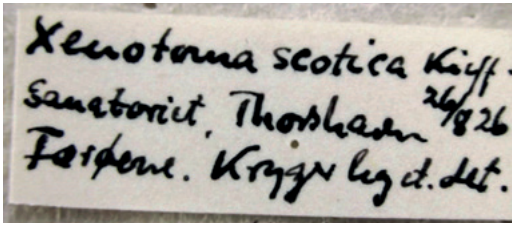 Xenotoma scotica Kieff.
Sanatoriet, Thorshavn 26/8 26
Færøerne. Kryger leg et. det.